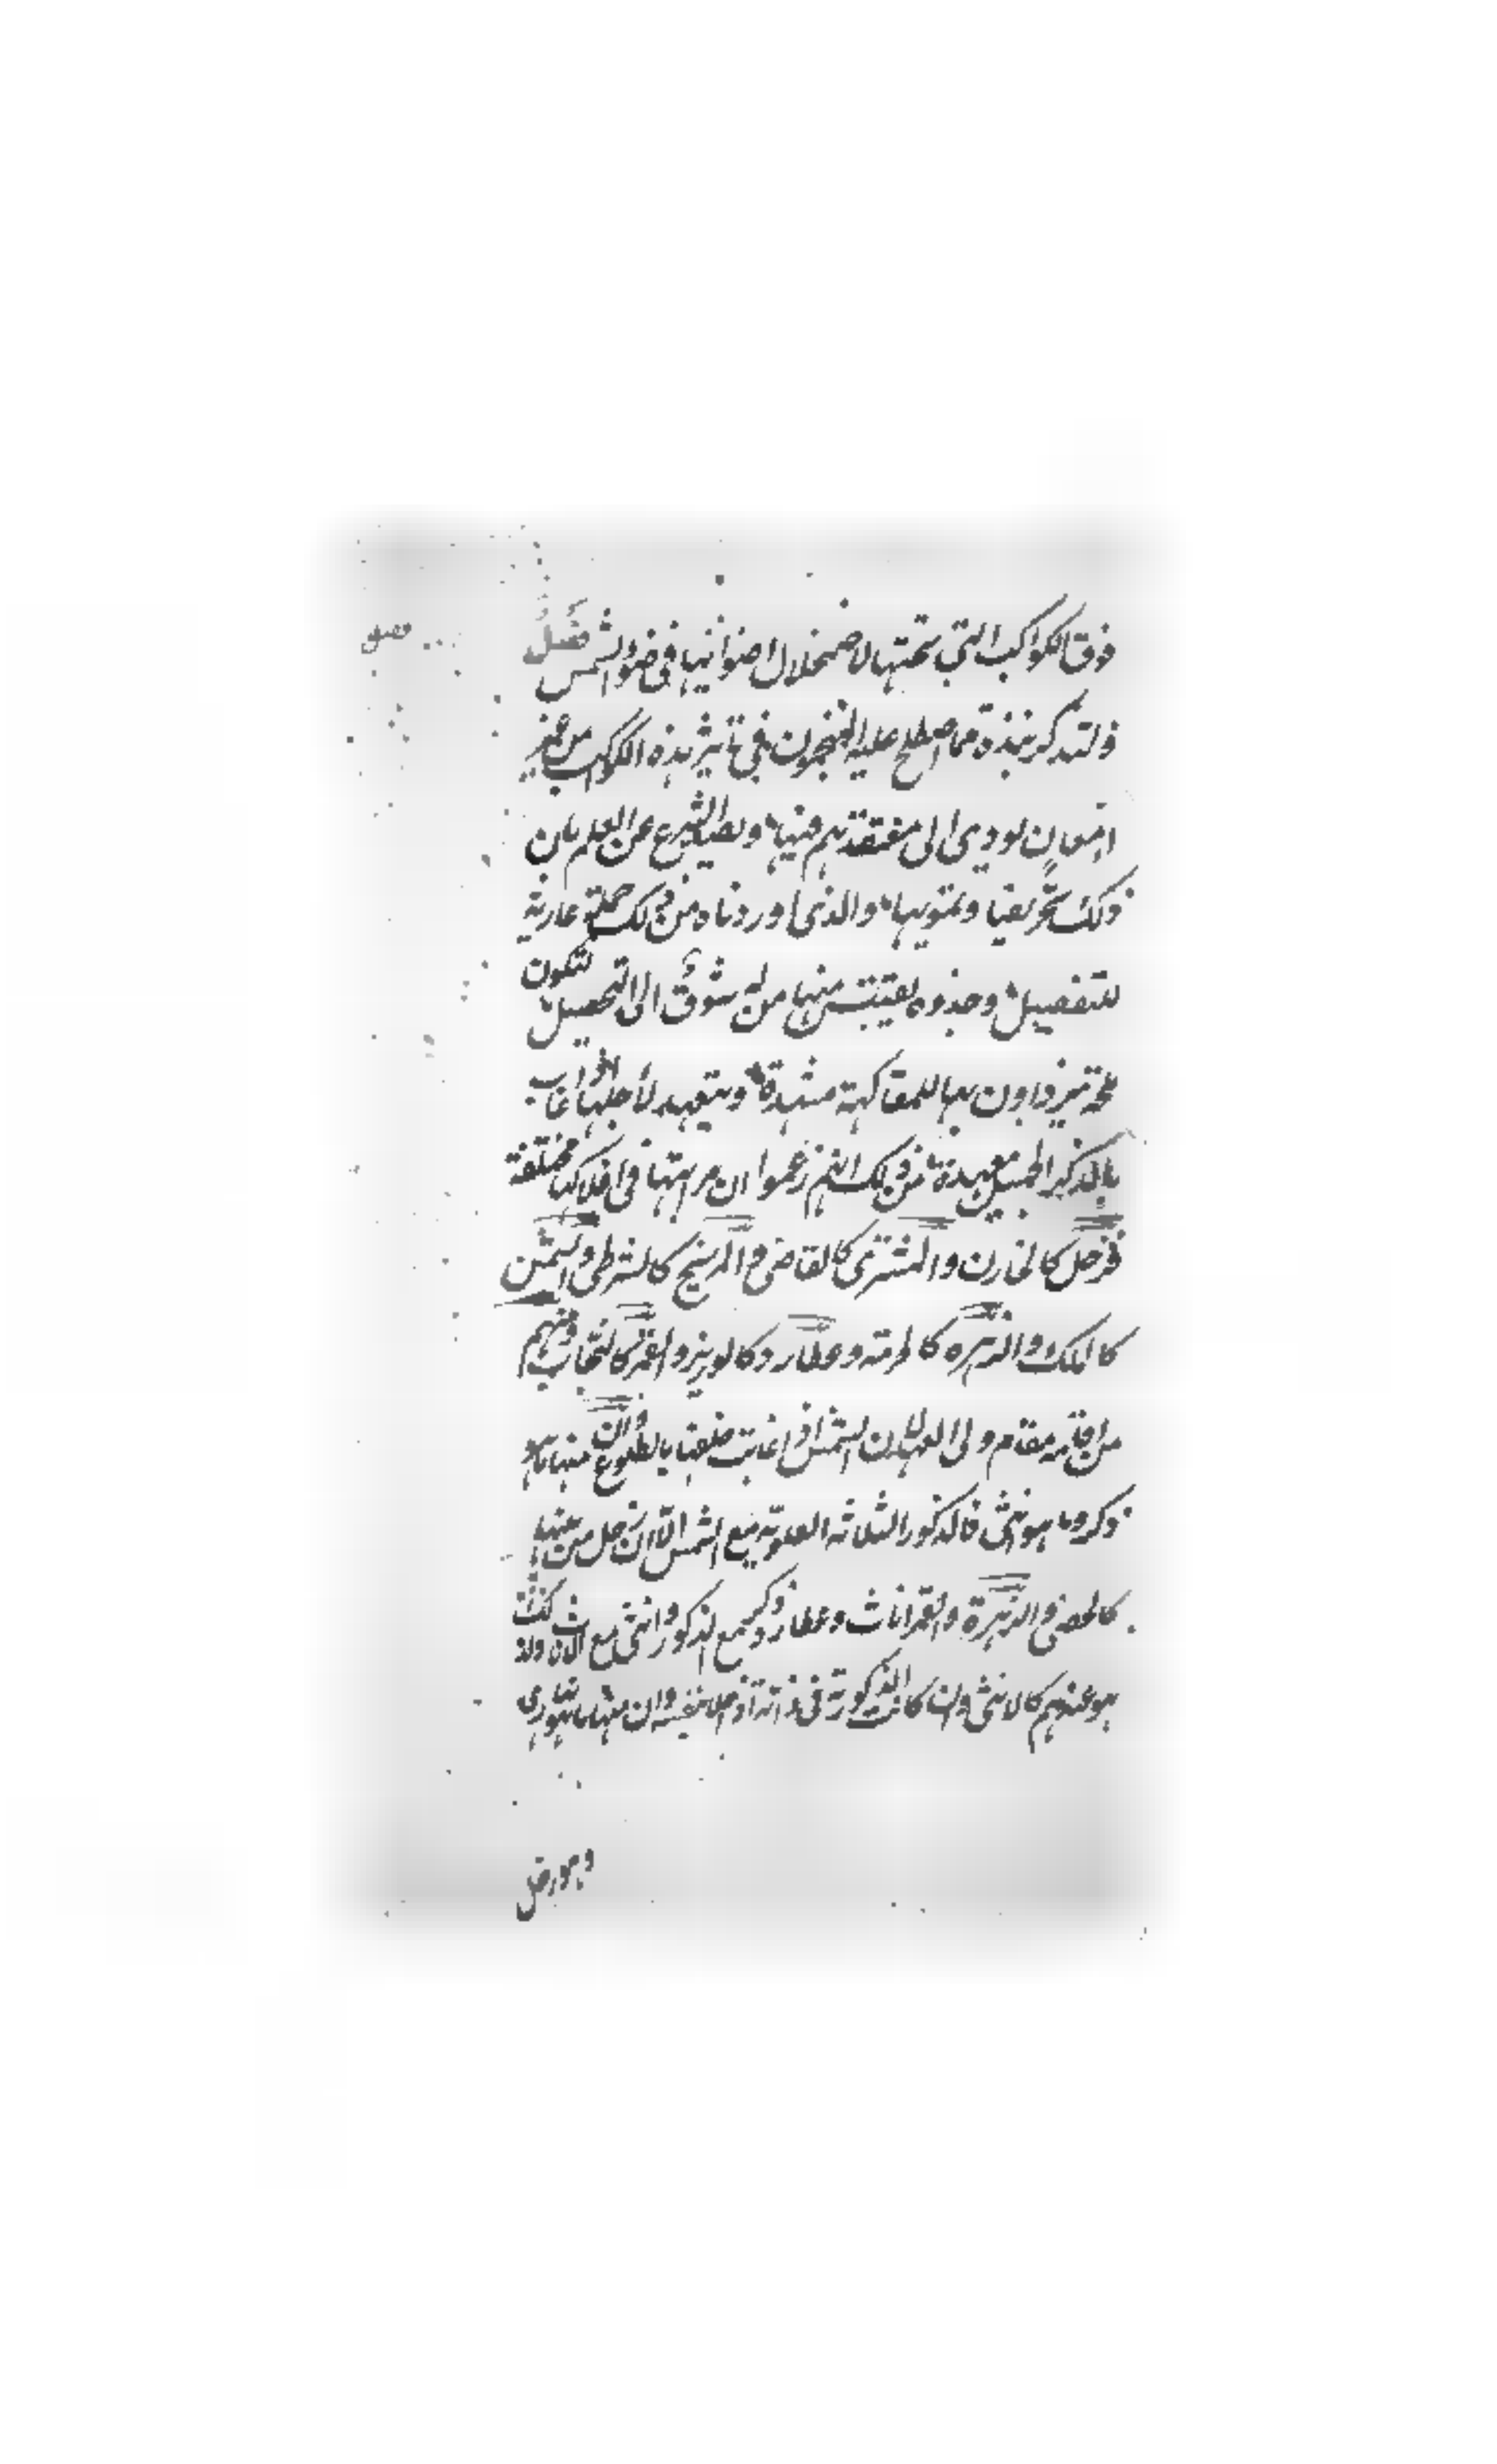 فوق الكواكب التي تحتها لاضمحلال اضوائها في ضوء الشمس فصل
ولنذكر نبذة مما اصطلح عليه المنجمون في تاثير هذه الكواكب من غير
امعان يودي الى معتقدهم فيها ويصد الشرع عن العلم بان
ذلك تحريفا وتمويها والذي اوردناه من ذلك جملة عارية
للتفصيل وجذوه يقتبس منها من له شوق الى التحصيل لتكون
بها للمفاكهة مشيدة ويتعهد لأجلها
بالذكر الجميل معهدة فمن ذلك انهم زعموا ان مراتبها في افلاكها مختلفة
فزحل كالخازن والمشتري كالقاضي والمريخ كالشرطي والشمس
كالملك والزهرة كالمرمته وعطارد كالوزير والقمر كالحاجب ومنهم
من اقامه مقام ولي العهد لان الشمس اذا غابت خلفها بالطلوع وان منها ما هو
ذكر وما هو انثى فالذكور الثلاثه العلويه مع الشمس الا ان زحل من بينها
كالخصي والزهرة والقمر اناث وعطارد ذكر مع الذكور وانثى مع الاناث ولذلك
هو عندهم كالانثى وان كانت الذكورية في ذاته اذ خلا بنفسه وان منها ما هو نهاري
وهو زحل
فصل